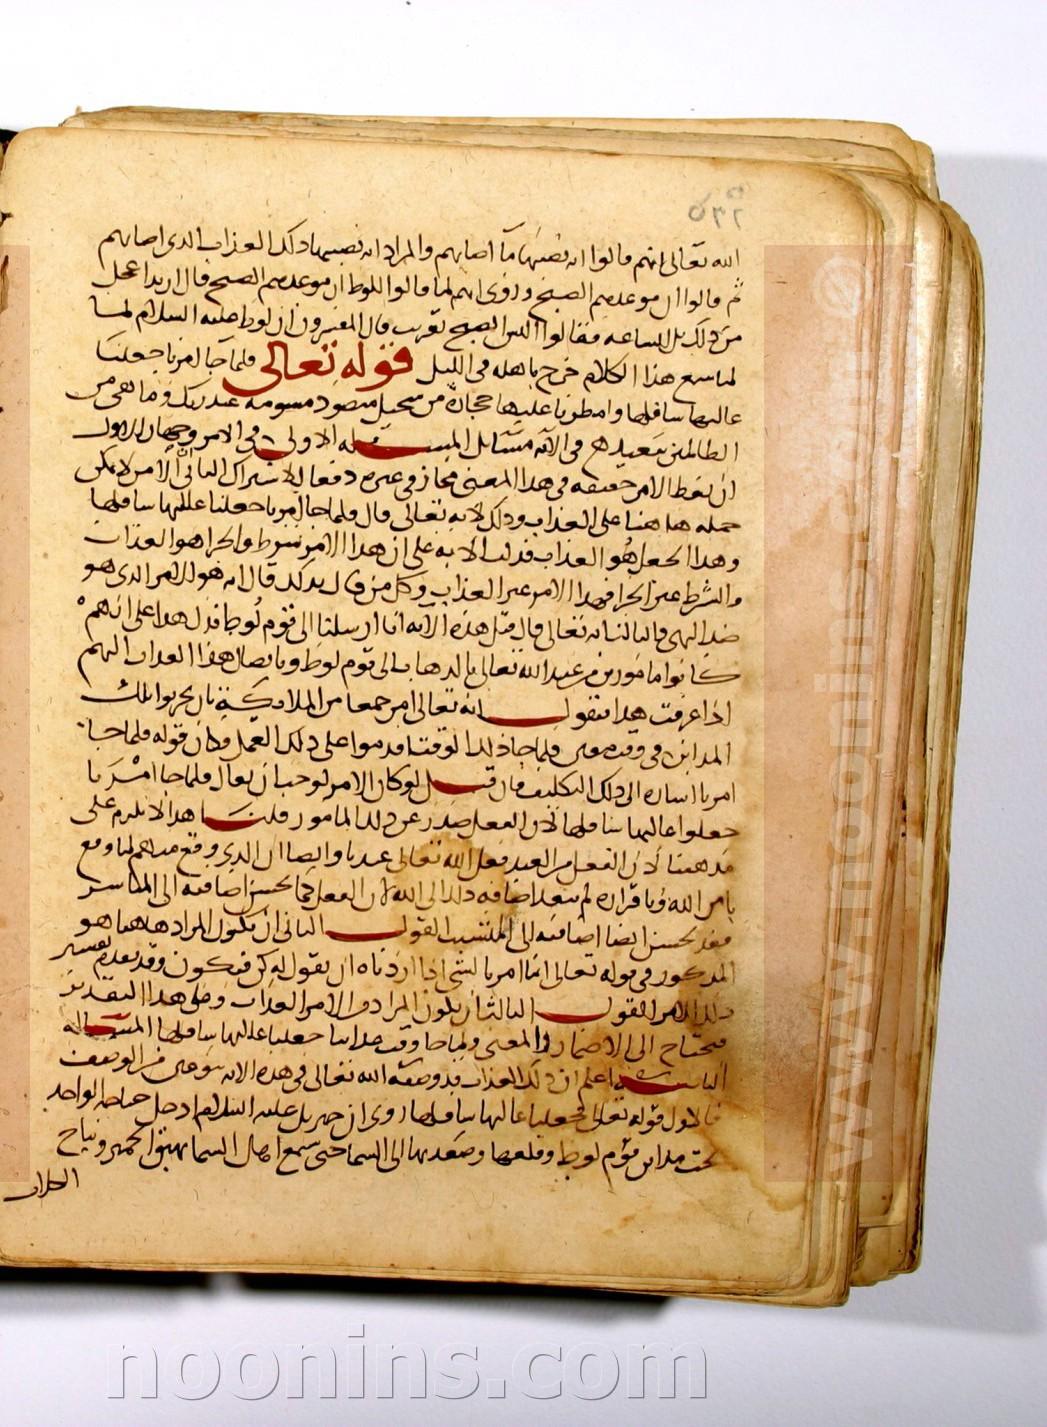 الله تعالى انهم قالوا انه نصيبها ما اصابهم والمراد انه نصيبها ذلك العذاب الذى اصابهم
ثم قالوا ان موعدهم الصبح وروى انهم لما قالوا للوط ان موعدهم الصبح قال اريد اعجل
من ذلك بل الساعه فقالوا اليس الصبح بقريب قال المفسرون ان لوط عليه السلام لما
لما سمع هذا الكلام خرج باهله فى الليل قوله تعالى فلما جا امرنا جعلنا
عاليها سافلها وامطرنا عليها حجارة من سجيل منضود مسومه عند ربك وما هى من
الظالمين ببعيد وفى الآيه مسائل المسئله الاولى فى الامر وجهان الاول
ان لفظ الامر حقيقه فى هذا المعنى مجاز فى غيره دفعا للاشتراك الثانى ان الامر لا يمكن
حمله هاهنا على العذاب وذلك لانه تعالى قال فلما جا امرنا جعلنا عاليها سافلها
وهذا الجعل هو العذاب فدلت الايه على ان هذا الامر شرط والجزا هو العذاب
والشرط غير الجزا فهذا الامر غير العذاب وكل من قال بذلك قال انه هو الامر الذى هو
ضد النهى والثالث انه تعالى قال قبل هذه الآيه انا ارسلنا الى قوم لوط فدل هذا على انهم
كانوا مامورين من عند الله تعالى بالذهاب الى قوم لوط وبايصال هذا العذاب اليهم
اذا عرفت هذا فنقول انه تعالى امر جمعا من الملائكة بان يخربوا تلك
المداين فى وقت معين فلما جا ذلك الوقت اقدموا على ذلك العمل فكان قوله فلما جا
امرنا اشاره الى ذلك التكليف فان قيل لو كان الامر لوجب ان يقال فلما جا امرنا
جعلوا عاليها سافلها لان الفعل صدر عن ذلك المامور قلنا هذا لا يلزم على
مذهبنا لان الفعل من العبد فعل الله تعالى عندنا وايضا ان الذى وقع منهم لما وقع
بامر الله وباقراره لم يبعد اضافه ذلك الى الله لان الفعل كما يحسن اضافته الى المباشر
فقد يحسن ايضا اضافته الى المتسبب القول الثانى ان يكون المراد هاهنا هو
المذكور فى قوله تعالى انما امرنا لشى اذا اردناه ان نقول له كن فيكون وقد تقدم تفسير
ذلك الامر القول الثالث ان يكون المراد من الامر العذاب وعلى هذا التقدير
فيحتاج الى الاضمار والمعنى ولما جا وقت عذابنا جعلنا عاليها سافلها المسئله
الثانيه اعلم ان ذلك العذاب قد وصفه الله تعالى فى هذه الايه بنوعين من الوصف
فالاول قوله تعالى فجعلنا عاليها سافلها روى ان جبريل عليه السلام ادخل جناحه الواحد
تحت مداين قوم لوط وقلعها وصعد بها الى السما حتى سمع اهل السما نهيق الحمير ونباح
الكلاب
noonins.com
www.noonins.com